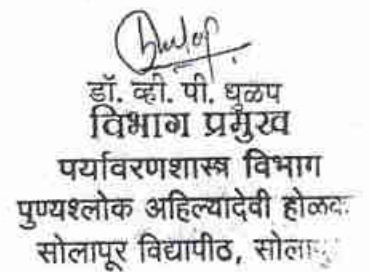 डॉ. व्ही. पी. धुळप
विभाग प्रमुख
पर्यावरणशास्त्र विभाग
पुण्यश्लोक अहिल्यादेवी
सोलापूर विद्यापीठ,